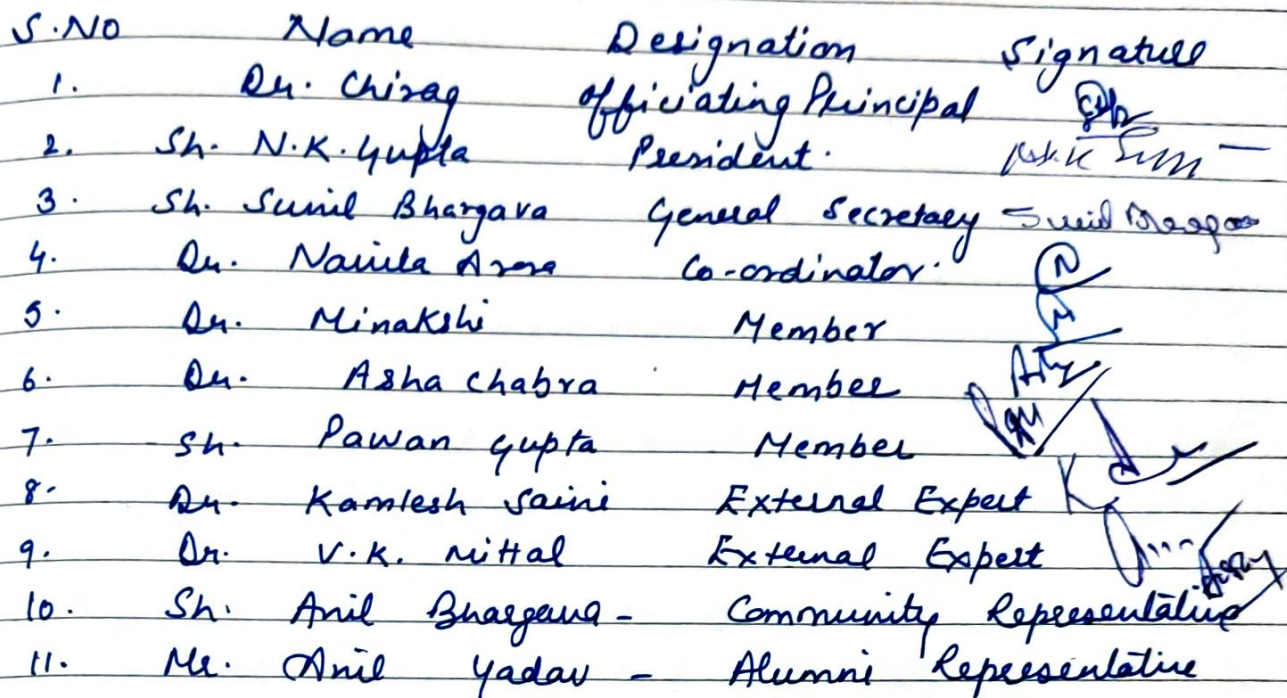 S.No Name Designation Signature
1. Dr. Chirag Officiating Principal
2. Sh. N.K. Gupta President.
3. Sh. Sunil Bhargava General Secretary Sunil
4. Dr. Navita Arora Co-ordinator.
5. Dr. Minakshi Member
6. Dr. Asha Chabra Member
7. Sh. Pawan Gupta Member
8. Dr. Kamlesh Saini External Expert
9. Dr. V.K. Mittal External Expert
10. Sh. Anil Bhargava - Community Representative
11. Mr. Anil Yadav - Alumni Representative